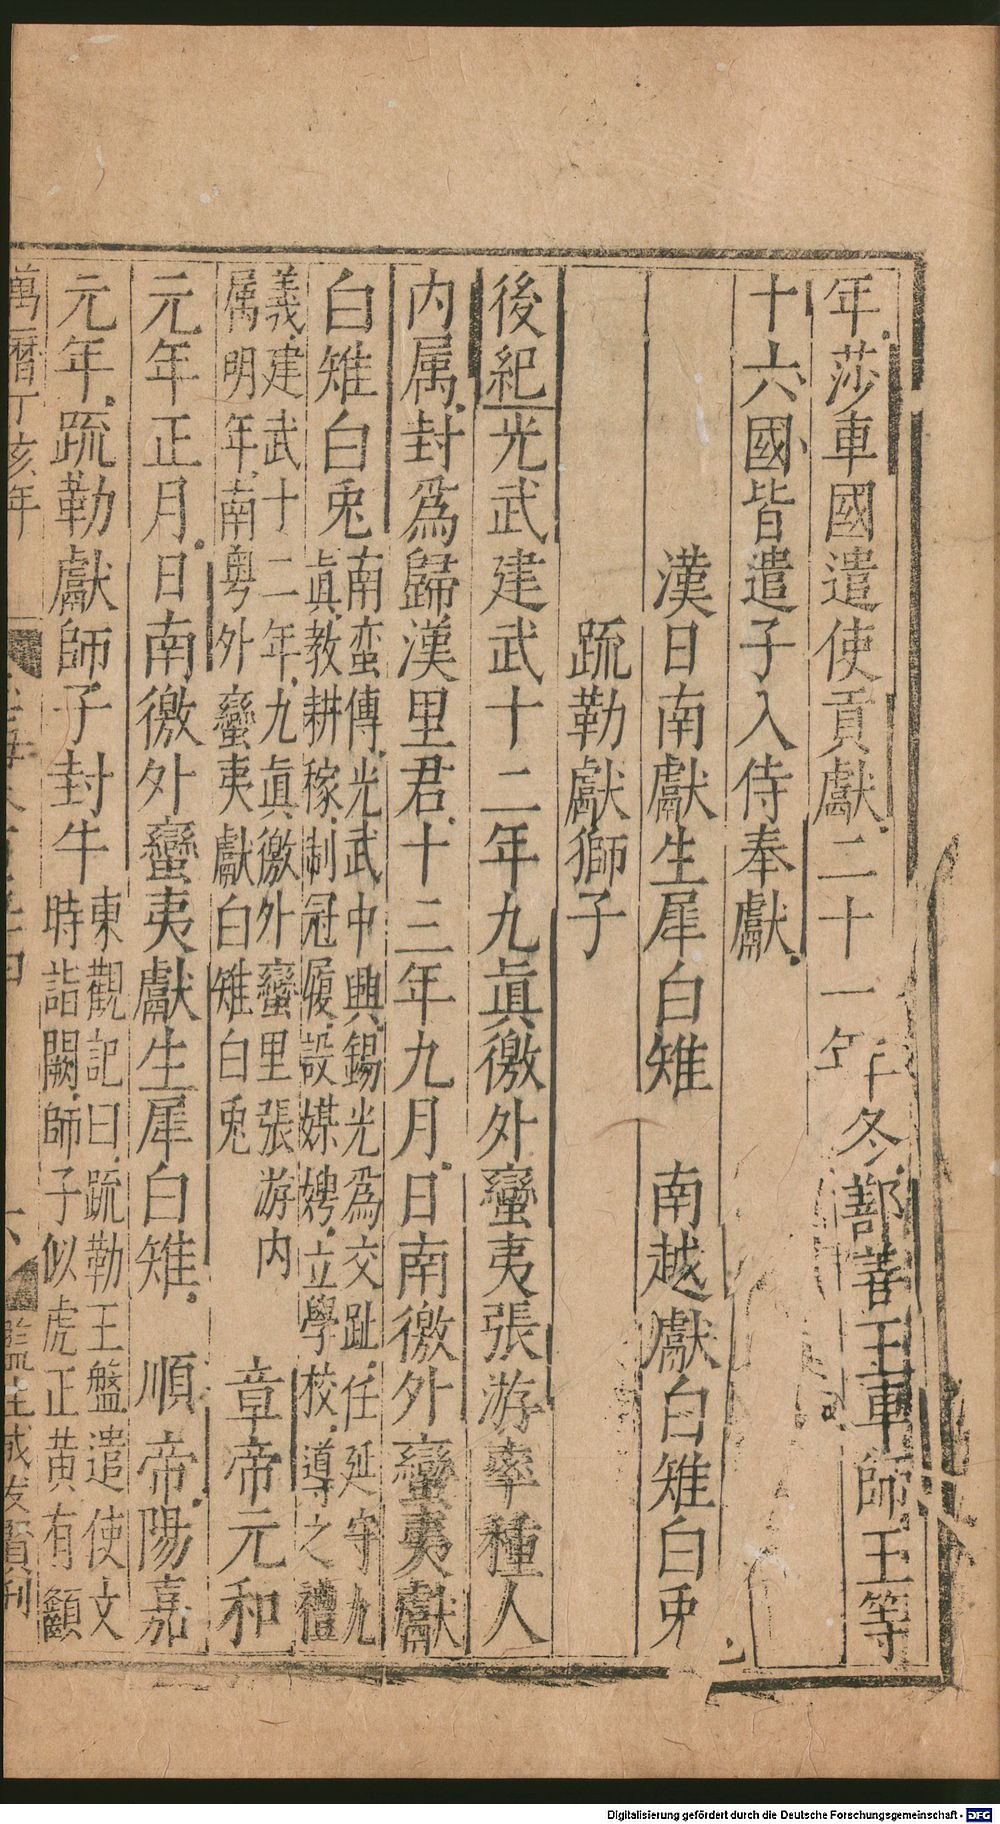 年莎車國遣使貢獻二十一年冬鄯善王車師王等
十六國皆遣子入侍奉獻
漢日南獻生犀白雉　南越獻白雉白兎
䟽勒獻獅子
後紀光武建武十二年九眞徼外蠻夷張游率種人
内属封爲歸漢里君十三年九月日南徼外蠻夷獻
白雉白兎
南蛮傳光武中興錫光爲交趾任延守九
眞教耕稼制冠履設媒娉立學校導之禮
義建武十二年九眞徼外蠻里張游内
属明年南粤外蠻夷獻白雉白兎
章帝元和
元年正月日南徼外蠻夷獻生犀白雉　順帝陽嘉
元年䟽勒獻師子封牛
東觀記曰䟽勒王盤遣使文
時詣闕師子似虎正黄有䫇
萬曆丁亥年
六
監生
刋
Digitalisierung gefördert durch die Deutsche Forschungsgemeinschaft - DFG